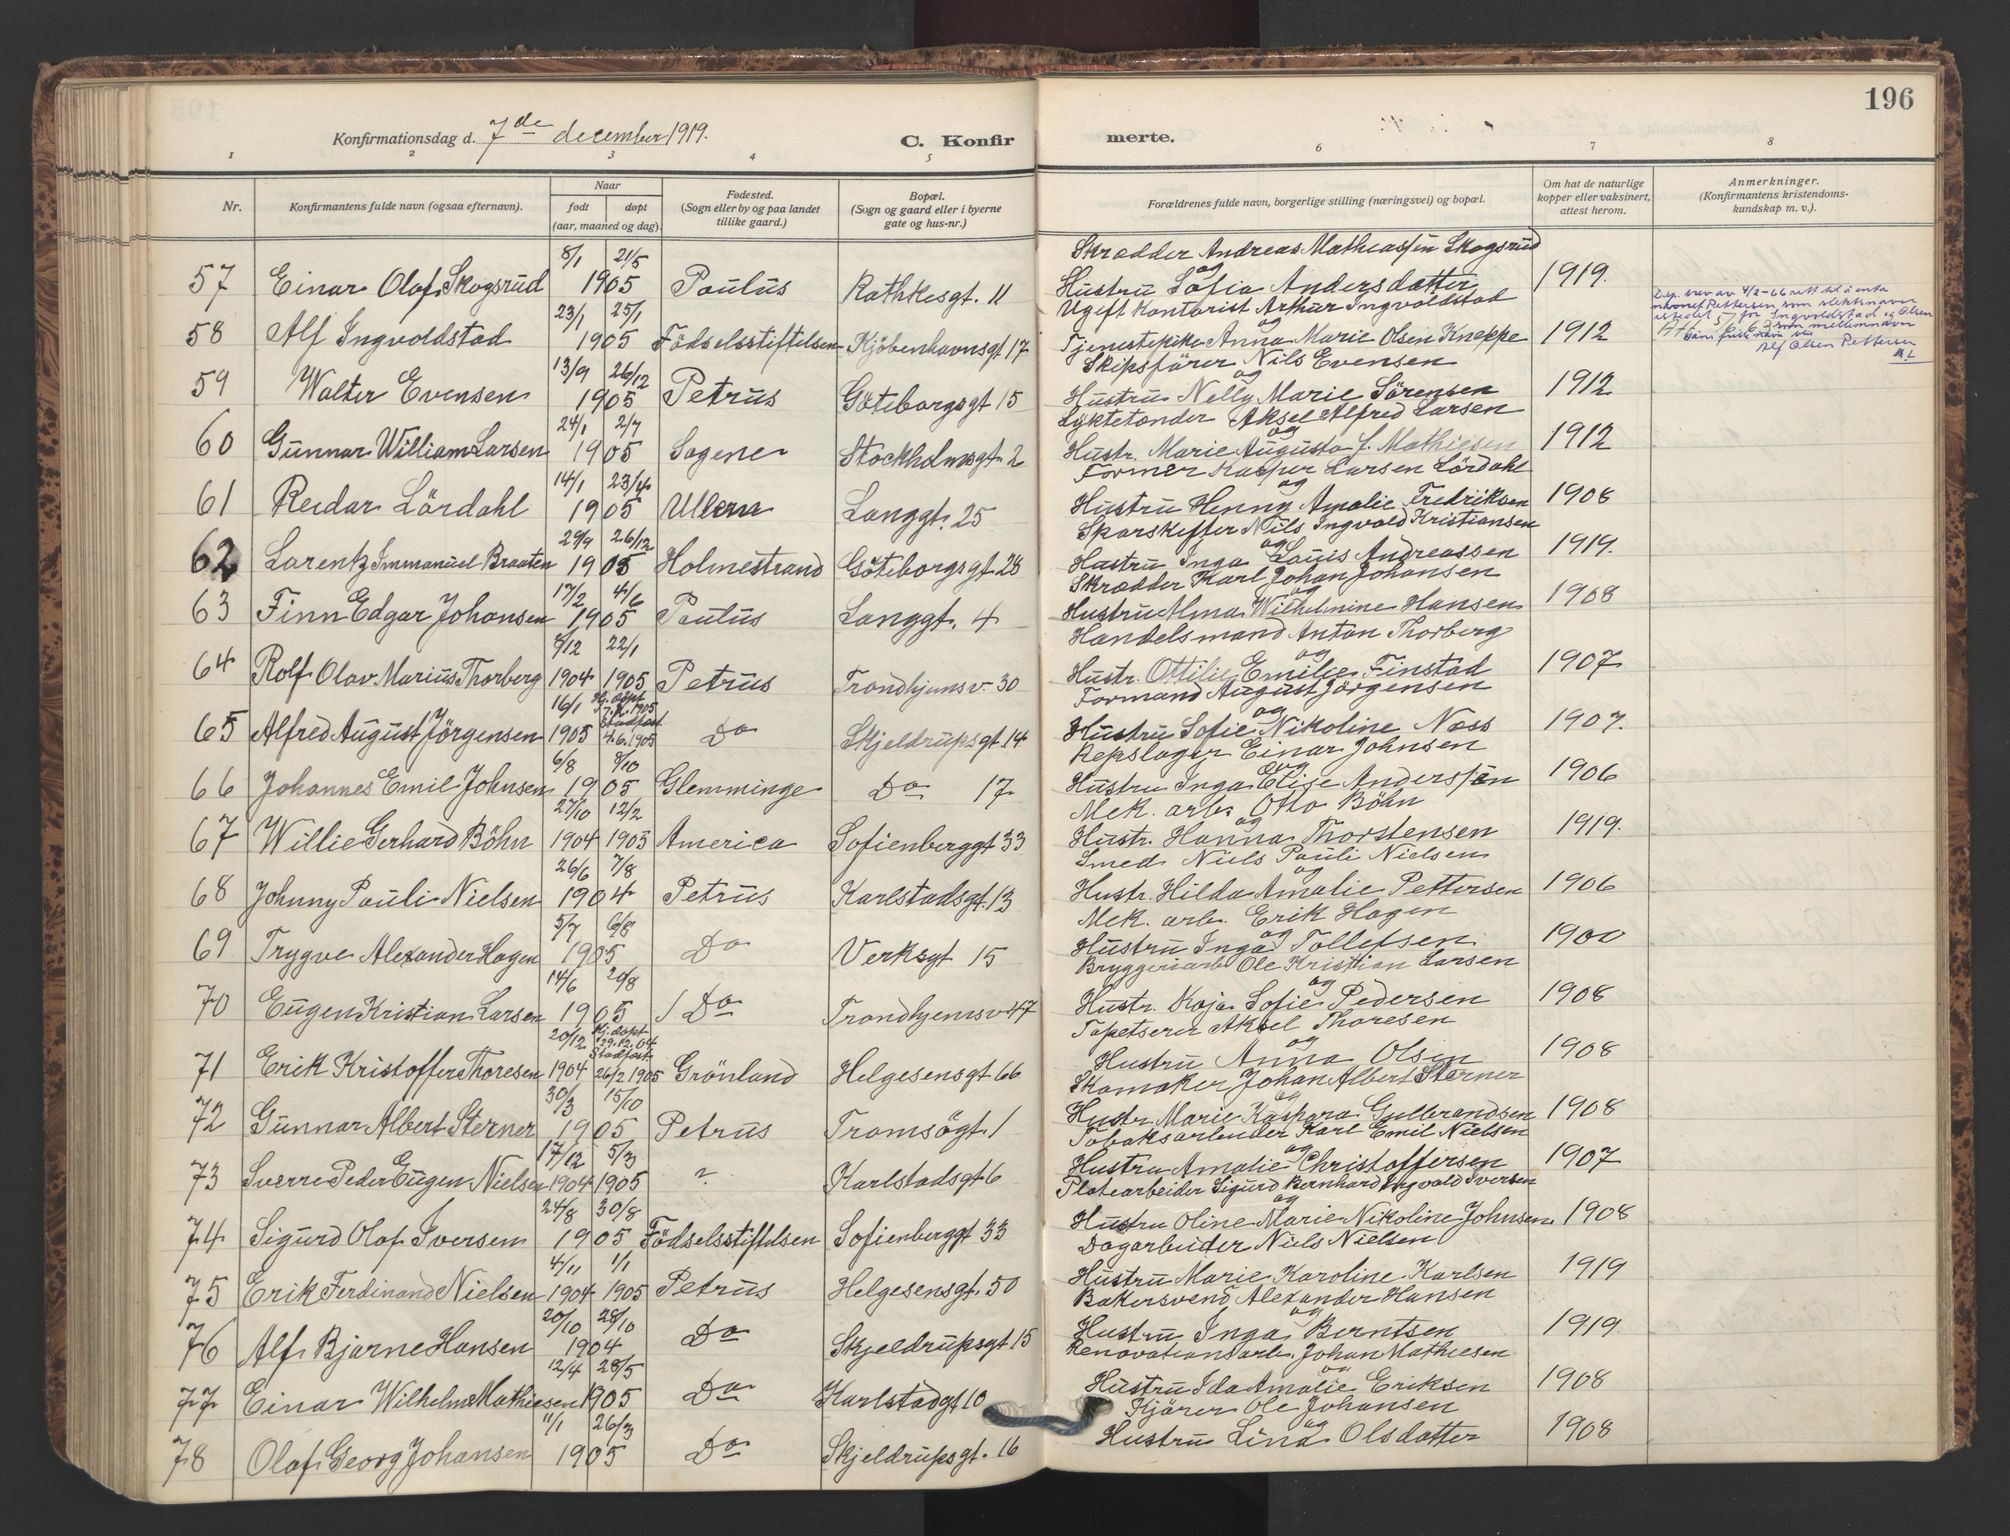 196
Konfirmationsdag d. 7de december 1919.
C. Konfir merte.
1 2 3 4 5 6 7 8
Nr.
Konfirmantens fulde navn (ogsaa efternavn).
Naar
født døpt
(aar, maaned og dag).
Fødested.
(Sogn eller by og paa landet
tillike gaard.)
Bopæl.
(Sogn og gaard eller i byerne
gate og hus-nr.)
Forældrenes fulde navn, borgerlige stilling (næringsvei) og bopæl.
Om hat de naturlige
kopper eller vaksinert,
attest herom.
Anmerkninger.
(Konfirmantens kristendoms-
kundskap m. v.).
8/1 21/5 Skrædder Andreas Mathiassen Skogsrud
57 Einar Olaf Skogsrud 1905 Paulus Rathkesgt. 11 og Hustru Sofie Andersdatter 1919.
23/1 25/1 Ugift Kontorist Arthur Ingvoldstad
58 Alf Ingvoldstad 1905 Födselsstiftelsen Kjöbenhavnsgt 17 og Tjenestepike Anna Marie Olsen Kneppe 1912
Dep. brev av 4/2-66 rett til å anta
navnet Pettersen som slektsnavn
istedet for Ingvoldstad og Olsen
som mellomnavn
Alf Olsen Pettersen
13/9 26/12 Skipsförer Nils Evensen
59 Walter Evensen 1905 Petrus Göteborgsgt 15 og Hustru Nelly Marie Sörensen 1912
24/1 2/7 Lyktetænder Aksel Alfred Larsen
60 Gunnar William Larsen 1905 Sagene Stockholmsgt. 2 og Hustr. Marie Augusta f. Mathiesen 1912
14/1 23/4 Former Kasper Larsen Lördahl
61 Reidar Lördahl 1905 Ullern Langgt. 25 og Hustru Henny Amalie Fredriksen 1908
29/9 26/12 Sporskifter Nils Ingvald Kristiansen
62 Lorentz Immanuel Braaten 1905 Holmestrand Göteborgsgt 28 og Hustru Inga Lauis Andreassen 1919.
17/2 4/6 Skrædder Karl Johan Johansen
63 Finn Edgar Johansen 1905 Paulus Langgt. 4 og Hustru Alma Wilhelmine Hansen 1908
8/12 22/1 Handelsmand Anton Thorberg
64 Rolf Olav Marius Thorberg 1904 1905 Petrus Trondhjemsv. 30 og Hustr. Ottilie Emilie Finstad 1907
16/1 Hj. döpt Formand August Jörgensen
65 Alfred August Jörgensen 1905 Stadfæst 4.6.1905 Do Skjeldrupsgt. 14 og Hustru Sofie Nikoline Næss 1907.
6/8 8/10 Repslager Einar Johnsen
66 Johannes Emil Johnsen 1905 Glemminge Do 17 og Hustru Inga Elise Anderssen 1906
27/10 12/2 Mek. arb. Otto Böhn
67 Willie Gerhard Böhn 1904 1905 America Sofienberggt 33 og Hustr. Hanna Thorstensen 1919.
26/6 7/8 Smed Niels Pauli Nielsen
68 Johnny Pauli Nielsen 1904 Petrus Karlstadsgt. 13 og Hustr. Hilda Amalie Pettersen 1906
5/7 6/8 Mek. arb. Erik Hagen
69 Trygve Alexander Hagen 1905 Do Verksgt 15 og Hustru Inga Tollefsen 1900
14/6 20/8 Bryggeriarb Ole Kristian Larsen
70 Eugen Kristian Larsen 1905 Do Trondhjemsv 47 og Hustr. Kaja Sofie Pedersen 1908
20/12 Hj. döpt 29.12.04 Tapetserer Aksel Thoresen
71 Erik Kristoffer Thoresen 1904 Stadfæst 26/2 1905 Grönland Helgesensgt 66 og Hustru Anna Olsen 1908
30/3 15/10 Skomaker Johan Albert Sterner
72 Gunnar Albert Sterner 1905 Petrus Tromsögt. 1 og Hustr. Marie Kaspara Gulbrandsen 1908
17/12 5/3 Tobaksarbeider Karl Emil Nielsen
73 Sverre Peder Eugen Nielsen 1904 1905 ? Karlstadsgt 6 og Hustru Amalie Christoffersen 1907
24/8 30/8 Platearbeider Sigurd Bernhard Ingvald Iversen
74 Sigurd Olaf Iversen 1905 Födselsstiftelsen Sofienberggt 33 og Hustru Oline Marie Nikoline Johnsen. 1908
4/11 1/1 Dagarbeider Niels Nielsen
75 Erik Ferdinand Nielsen 1904 1905 Petrus Helgesensgt. 50 Hustru Marie Karoline Karlsen 1919
20/10 28/10 Bakersvend Alexander Hansen
76 Alf Bjarne Hansen 1904 Do Skjeldrupsgt 15 og Hustru Inga Berntsen 1919.
12/4 28/5 Renovationsarb. Johan Mathiesen
77 Einar Wilhelm Mathiesen 1905 Do Karlstadgt 10 og Hustru Ida Amalie Eriksen 1908
11/1 26/3 Kjörer Ole Johansen
78 Olaf Georg Johansen 1905 Do Skjeldrupsgt. 16 og Hustru Lina Olsdatter 1908